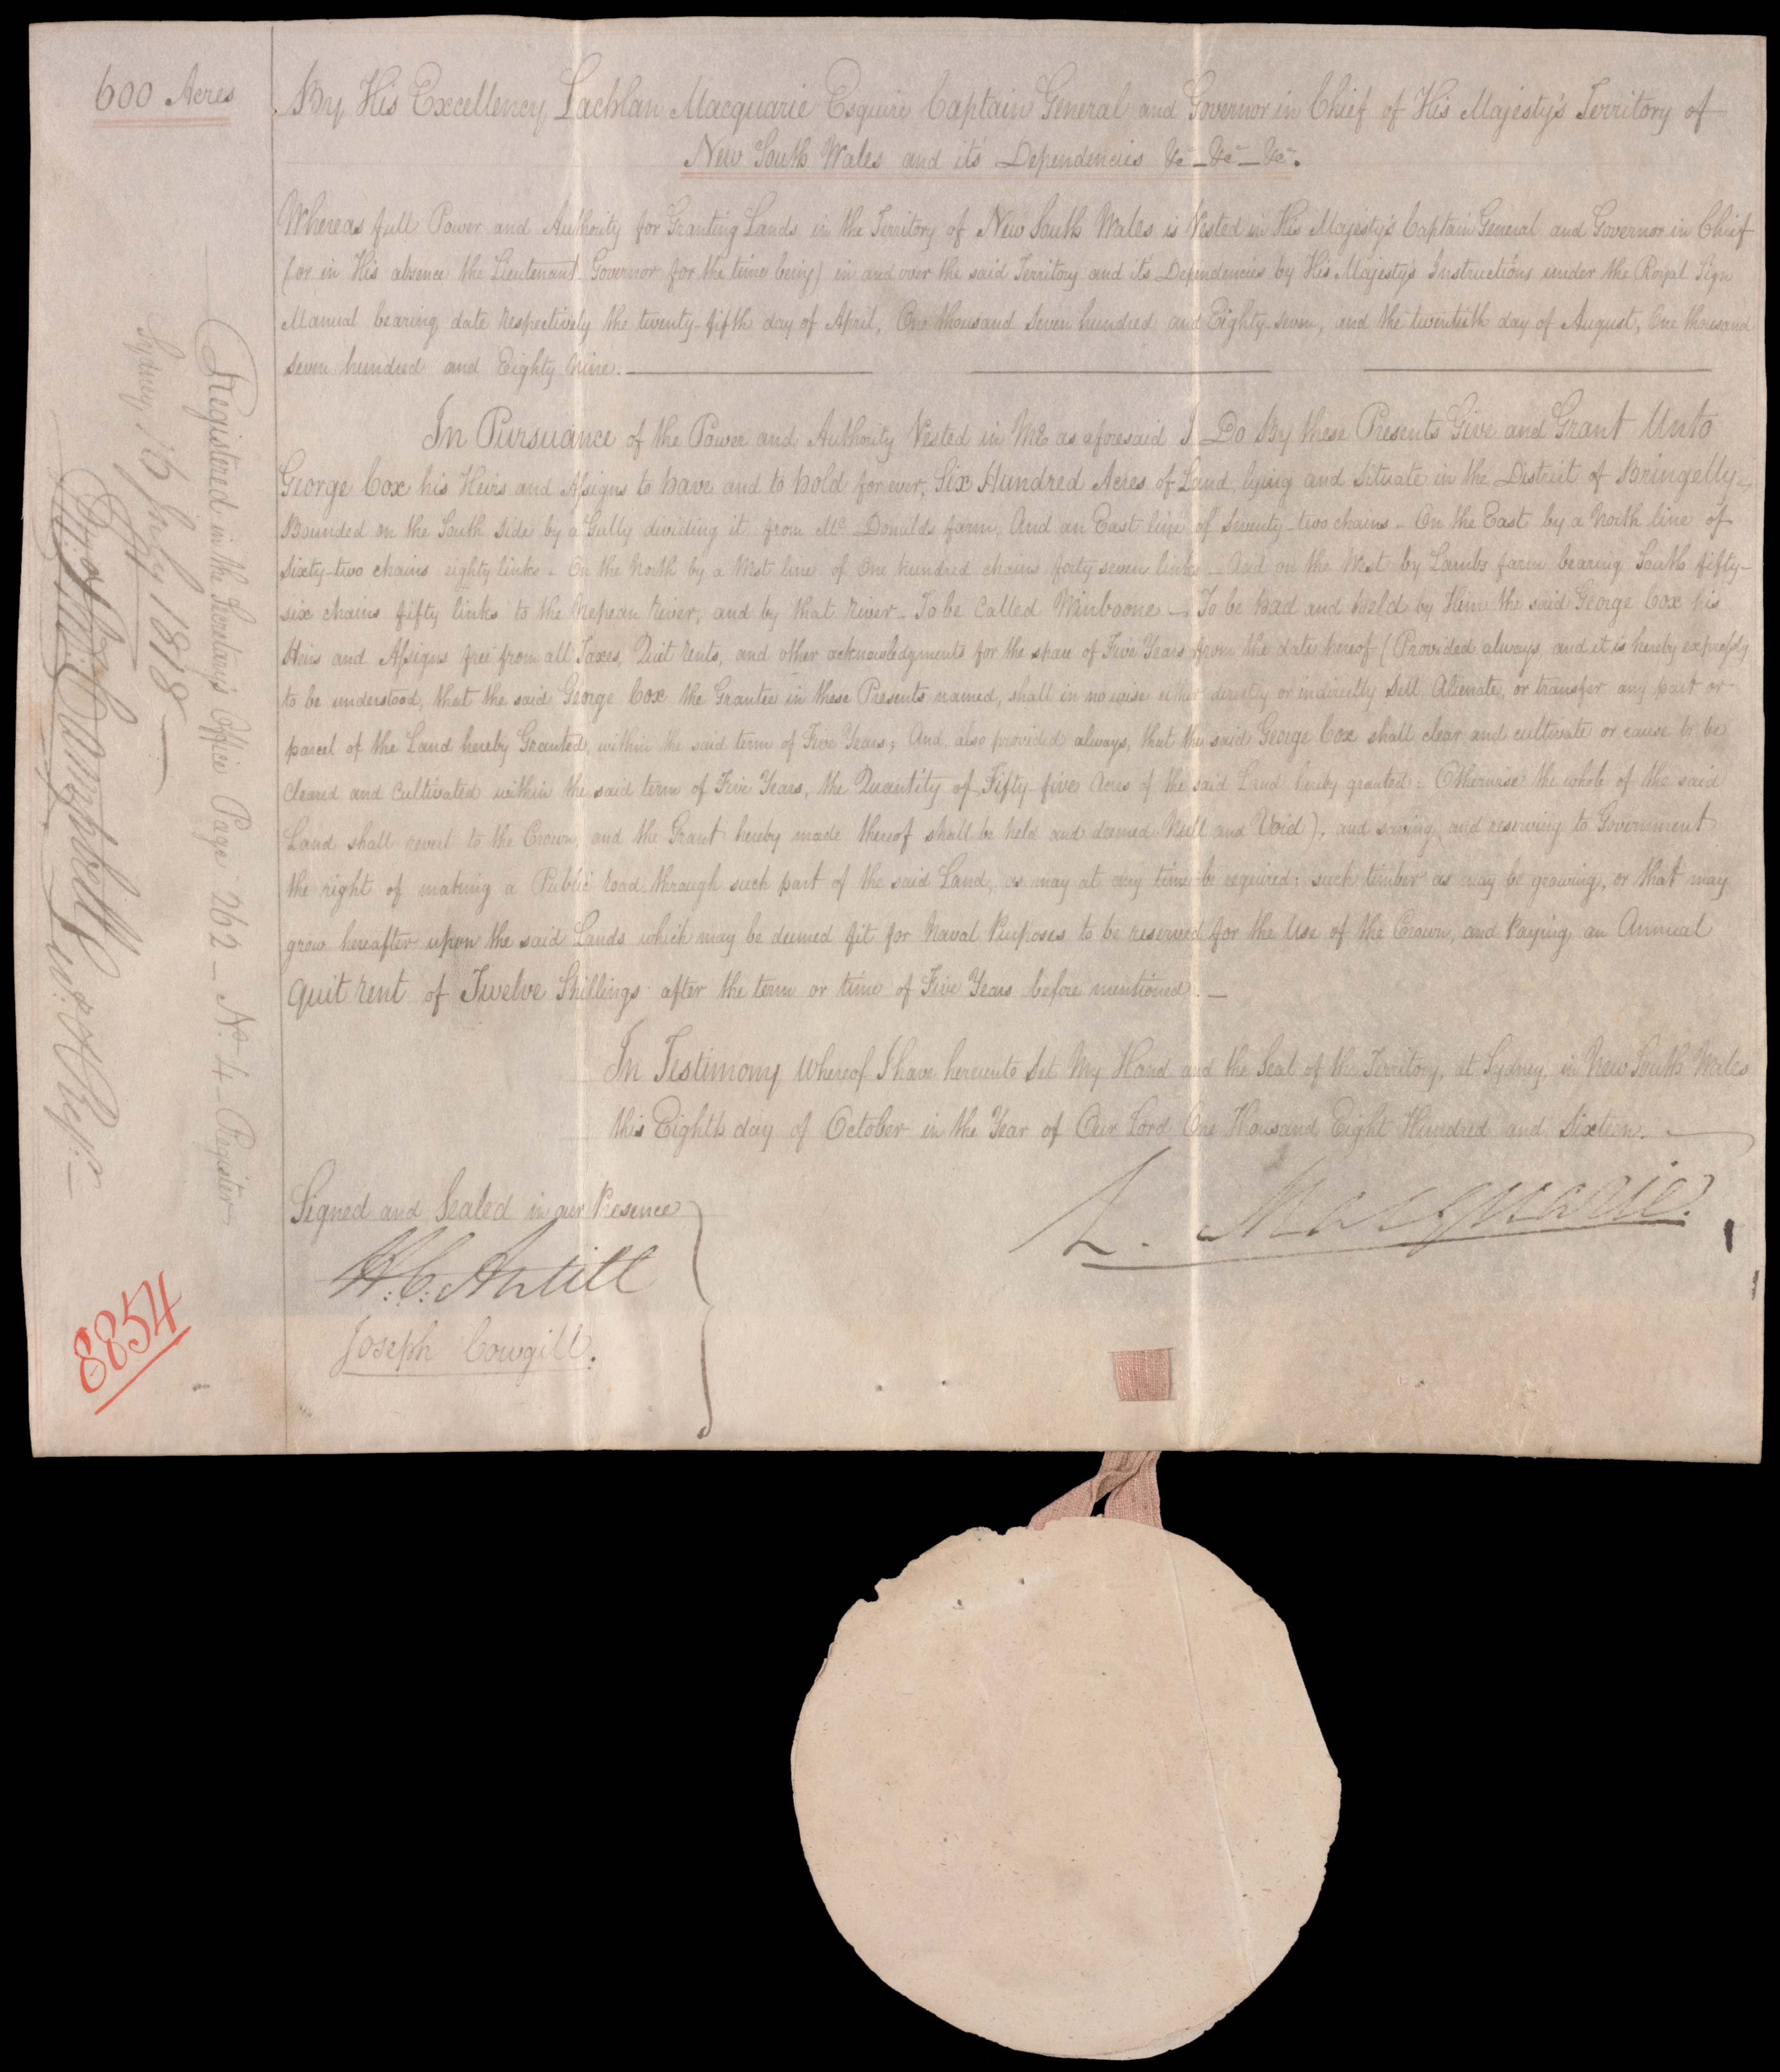 600 Acres
By His Excellency Lachlan Macquarie Esquire Captain General and Governor in Chief of His Majesty's Territory of
New South Wales and it's Dependencies &c - &c - &c.
Whereas full Power and Authority for Granting Lands in the Territory of New South Wales is Vested in His Majesty's Captain General and Governor in Chief
(or in His absence the Lieutenant Governor for the time being) in and over the said Territory and it's Dependencies by His Majesty's Instructions under the Royal Sign
Manual bearing date respectively the twenty-fifth day of April, One thousand seven hundred and Eighty-seven, and the twentieth day of August, One thousand
seven hundred and Eighty Nine.
In Pursuance of the Power and Authority Vested in Me as aforesaid I Do By these Presents Give and Grant Unto
George Cox his Heirs and Assigns to have and to hold for ever, Six Hundred Acres of Land, lying and Situate in the District of Bringelly,
Bounded on the South Side by a Gully dividing it from Mc. Donalds farm, And an East line of Seventy-two chains - On the East by a North line of
sixty-two chains eighty links - On the North by a West line of One hundred chains forty seven links - And on the West by Lambs farm bearing South fifty-
six chains fifty links to the Nepean River, and by that River - To be Called Winboone - To be had and held by Him the said George Cox his
Heirs and Assigns free from all Taxes, Quit Rents, and other acknowledgments for the space of Five Years from the date hereof (Provided always, and it is hereby expressly
to be understood, that the said George Cox the Grantee in these Presents named, shall in no wise either directly or indirectly Sell, Alienate, or transfer any part or
parcel of the Land hereby Granted, within the said term of Five Years; And, also provided always, that the said George Cox shall clear and cultivate or cause to be
cleared and cultivated within the said term of Five Years, the Quantity of Fifty-five Acres of the said Land hereby granted: Otherwise the whole of the said
Land shall revert to the Crown, and the Grant hereby made thereof shall be held and deemed Null and Void); and saving, and reserving to Government
the right of making a Public Road through such part of the said Land, as may at any time be required; such timber as may be growing, or that may
grow hereafter upon the said Lands which may be deemed fit for Naval Purposes to be reserved for the Use of the Crown, and Paying an Annual
Quit Rent of Twelve Shillings after the term or time of Five Years before mentioned. -
In Testimony Whereof I have hereunto Set My Hand and the Seal of the Territory, at Sydney, in New South Wales
this Eighth day of October in the Year of Our Lord One Thousand Eight Hundred and Sixteen.
L. Macquarie.
Signed and Sealed in our Presence
H. C. Antill
Joseph Cowgill.
Registered in the Secretary's Office Page 262 - No. 4 - Register
Sydney, 16 July 1818 -
Campbell
8854